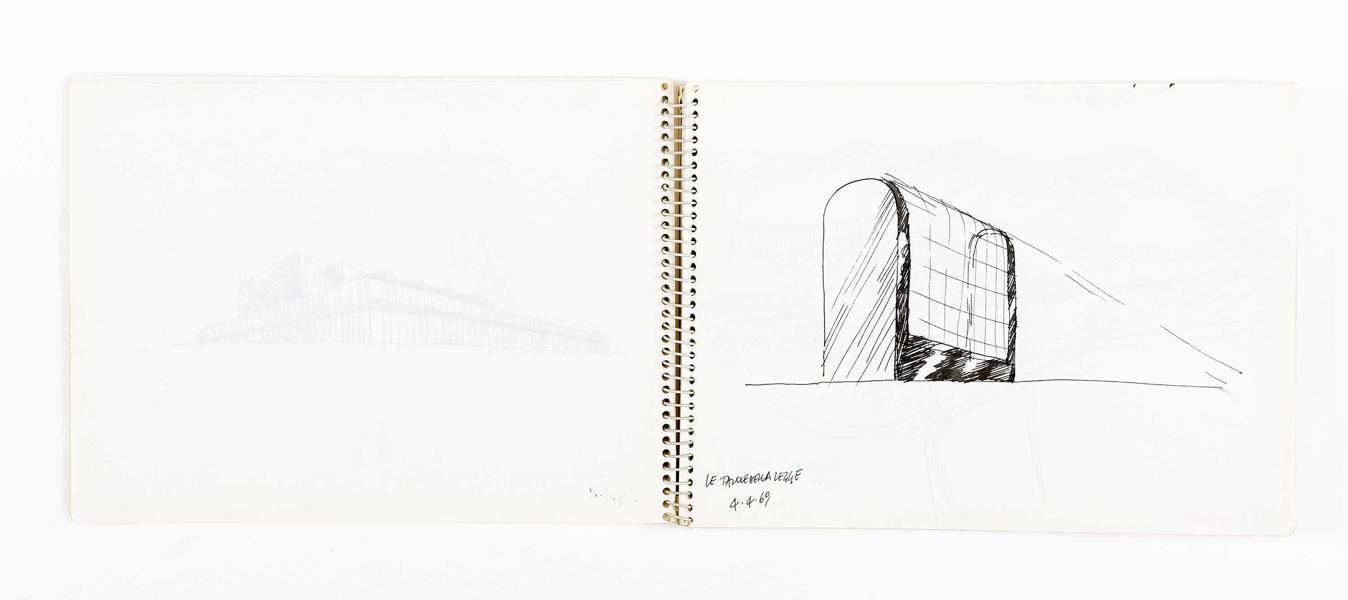 LE TAVOLE DELLA LEGGE
4.4.69